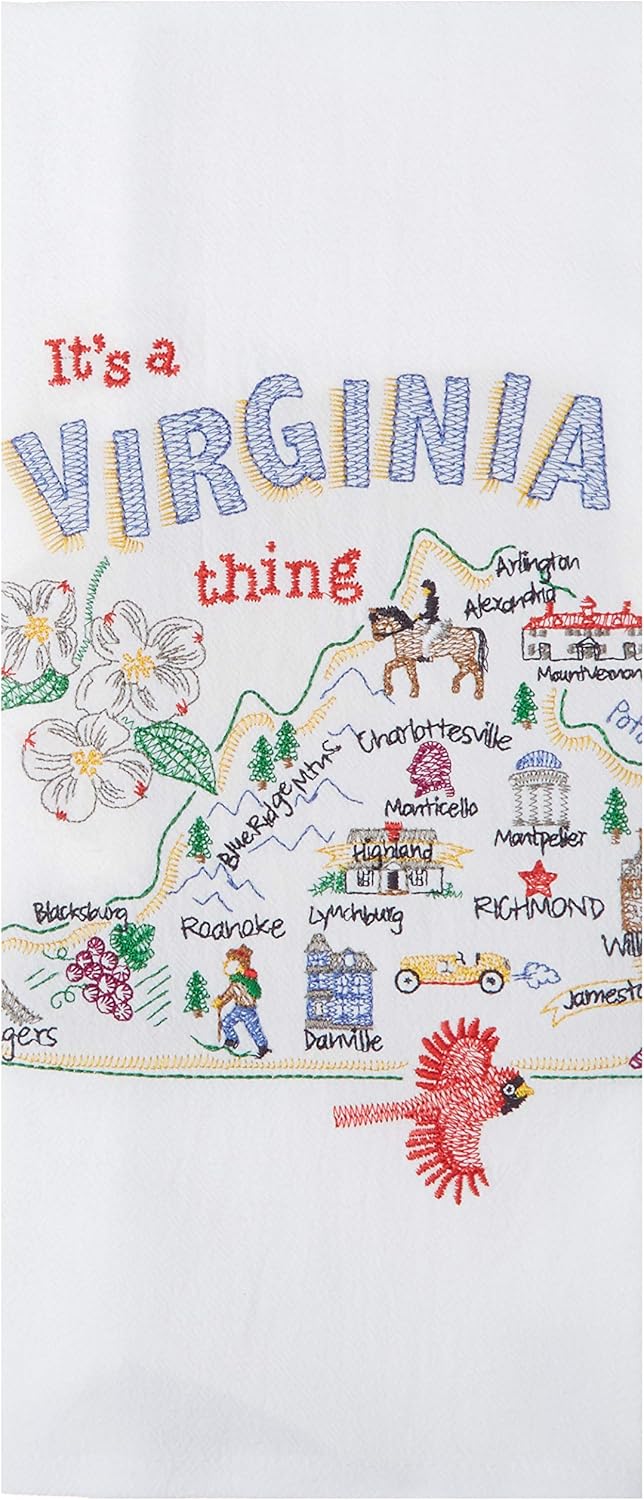 It's a
VIRGINIA
thing
Arlington
Alexandria
Mount Vernon
Charlottesville
Blue Ridge Mtns
Monticello
Montpelier
Highland
Blacksburg
Roanoke
Lynchburg
RICHMOND
Danville